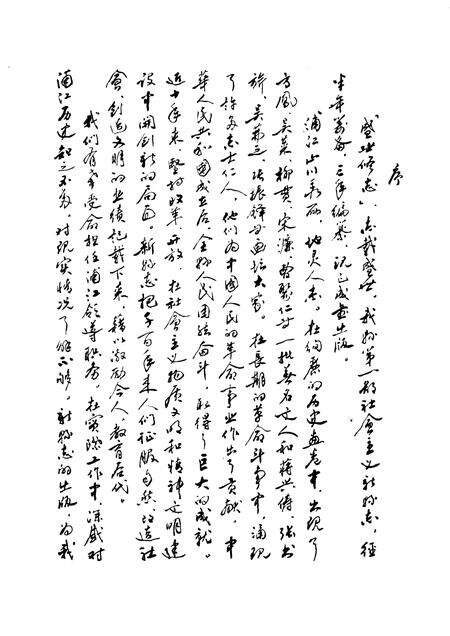 序
“盛世修志”，志载盛世。我县第一部社会主义新县志，经
半年筹备，三年编纂，现已成书出版。
浦江山川秀丽，地灵人杰。在绚丽的历史画卷中，出现了
方凤、吴莱、柳贯、宋濂、曹聚仁等一批著名文人和蒋兴俦、张书
旂、吴茀之、张振铎等画坛大家。在长期的革命斗争中，涌现
了许多志士仁人，他们为中国人民的革命事业作出了贡献。中
华人民共和国成立后，全县人民团结奋斗，取得了巨大的成就。
近十年来，坚持改革、开放，在社会主义物质文明和精神文明建
设中开创新的局面。新县志把千百年来人们征服自然、改造社
会、创造文明的业绩记载下来，藉以激励今人，教育后代。
我们有幸受命担任浦江领导职务，在实际工作中，深感对
浦江历史知之不多，对现实情况了解不够。新县志的出版，为我